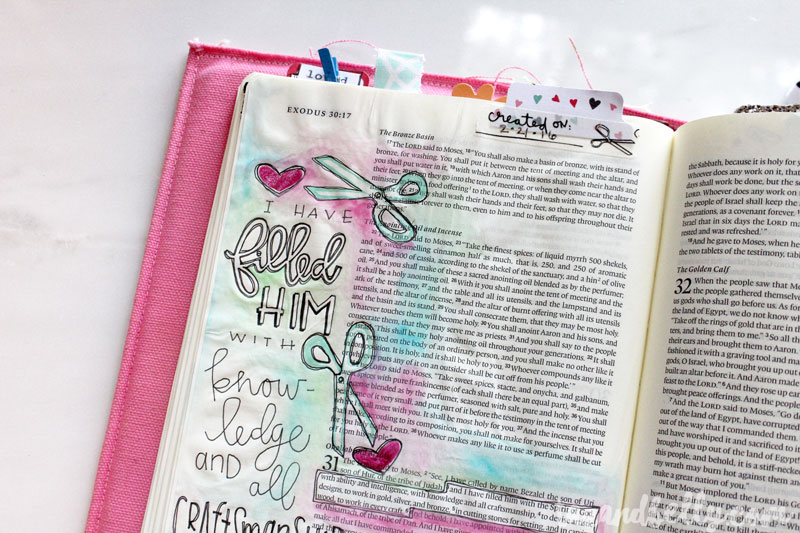 loved
created on:
2.21.16
EXODUS 30:17
I HAVE
filled
HIM
WITH
know-
ledge
AND all
The Bronze Basin
17 The LORD said to Moses, 18 "You shall also make a basin of bronze, with its stand of
bronze, for washing. You shall put it between the tent of meeting and the altar, and
you shall put water in it, 19 with which Aaron and his sons shall wash their hands and
their feet.
they go into the tent of meeting, or when they come near the altar to
food offering to the LORD, they shall wash with water, so that they may not die.
shall wash their hands and their feet, so that they may not die. It
forever to them, even to him and to his offspring throughout their
Oil and Incense
The LORD said to Moses, 23 "Take the finest spices: of liquid myrrh 500 shekels,
and of sweet-smelling cinnamon half as much, that is, 250, and 250 of aromatic
cane, 24 and 500 of cassia, according to the shekel of the sanctuary, and a hin of olive
oil. 25 And you shall make of these a sacred anointing oil blended as by the perfumer;
it shall be a holy anointing oil. 26 With it you shall anoint the tent of meeting and the
ark of the testimony, 27 and the table and all its utensils, and the lampstand and its
utensils, and the altar of incense, 28 and the altar of burnt offering with all its utensils
and the basin and its stand. 29 You shall consecrate them, that they may be most holy.
Whatever touches them will become holy. 30 You shall anoint Aaron and his sons, and
consecrate them, that they may serve me as priests. 31 And you shall say to the people
This shall be my holy anointing oil throughout your generations. 32 It shall
poured on the body of an ordinary person, and you shall make no other like it
composition. It is holy, and it shall be holy to you. 33 Whoever compounds any like it
puts any of it on an outsider shall be cut off from his people.'"
The LORD said to Moses, "Take sweet spices, stacte, and onycha, and galbanum,
spices with pure frankincense (of each shall there be an equal part), 35 and make
blended as by the perfumer, seasoned with salt, pure and holy. 36 You shall
and put part of it before the testimony in the tent of meeting
I shall meet with you. It shall be most holy for you. 37 And the incense that you
according to its composition, you shall not make for yourselves. It shall be
holy to the LORD. 38 Whoever makes any like it to use as perfume shall be cut
off from his people."
31 The LORD said to Moses, 2 "See, I have called by name Bezalel the son of Uri,
son of Hur, of the tribe of Judah, 3 and I have filled him with the Spirit of God,
with ability and intelligence, with knowledge and all craftsmanship, 4 to devise artistic
designs, to work in gold, silver, and bronze, 5 in cutting stones for setting, and in carving
wood, to work in every craft. 6 And behold, I have appointed with him
of Ahisamach, of the tribe of Dan. And I have given
make all that I have commanded
the Sabbath, because it is holy for
Whoever does any work on it, that
days shall work be done, but the
LORD. Whoever does any work on
the people of Israel shall keep the
generations, as a covenant forever.
Israel that in six days the LORD
rested and was refreshed.'"
18 And he gave to Moses, when he
the two tablets of the testimony, tablets
The Golden Calf
32 When the people saw that Moses
the people gathered themselves
us gods who shall go before us. As for
of the land of Egypt, we do not know
"Take off the rings of gold that are in
ters, and bring them to me." 3 So all
their ears and brought them to Aaron.
fashioned it with a graving tool and
gods, O Israel, who brought you up out
built an altar before it. And Aaron made
feast to the LORD." 6 And they rose up
brought peace offerings. And the people
7 And the LORD said to Moses, "Go
out of the land of Egypt, have corrupted
out of the way that I commanded them.
and have worshiped it and sacrificed to it
brought you up out of the land of Egypt!'"
this people, and behold, it is a stiff-necked
my wrath may burn hot against them and
make a great nation of you."
11 But Moses implored the LORD his God